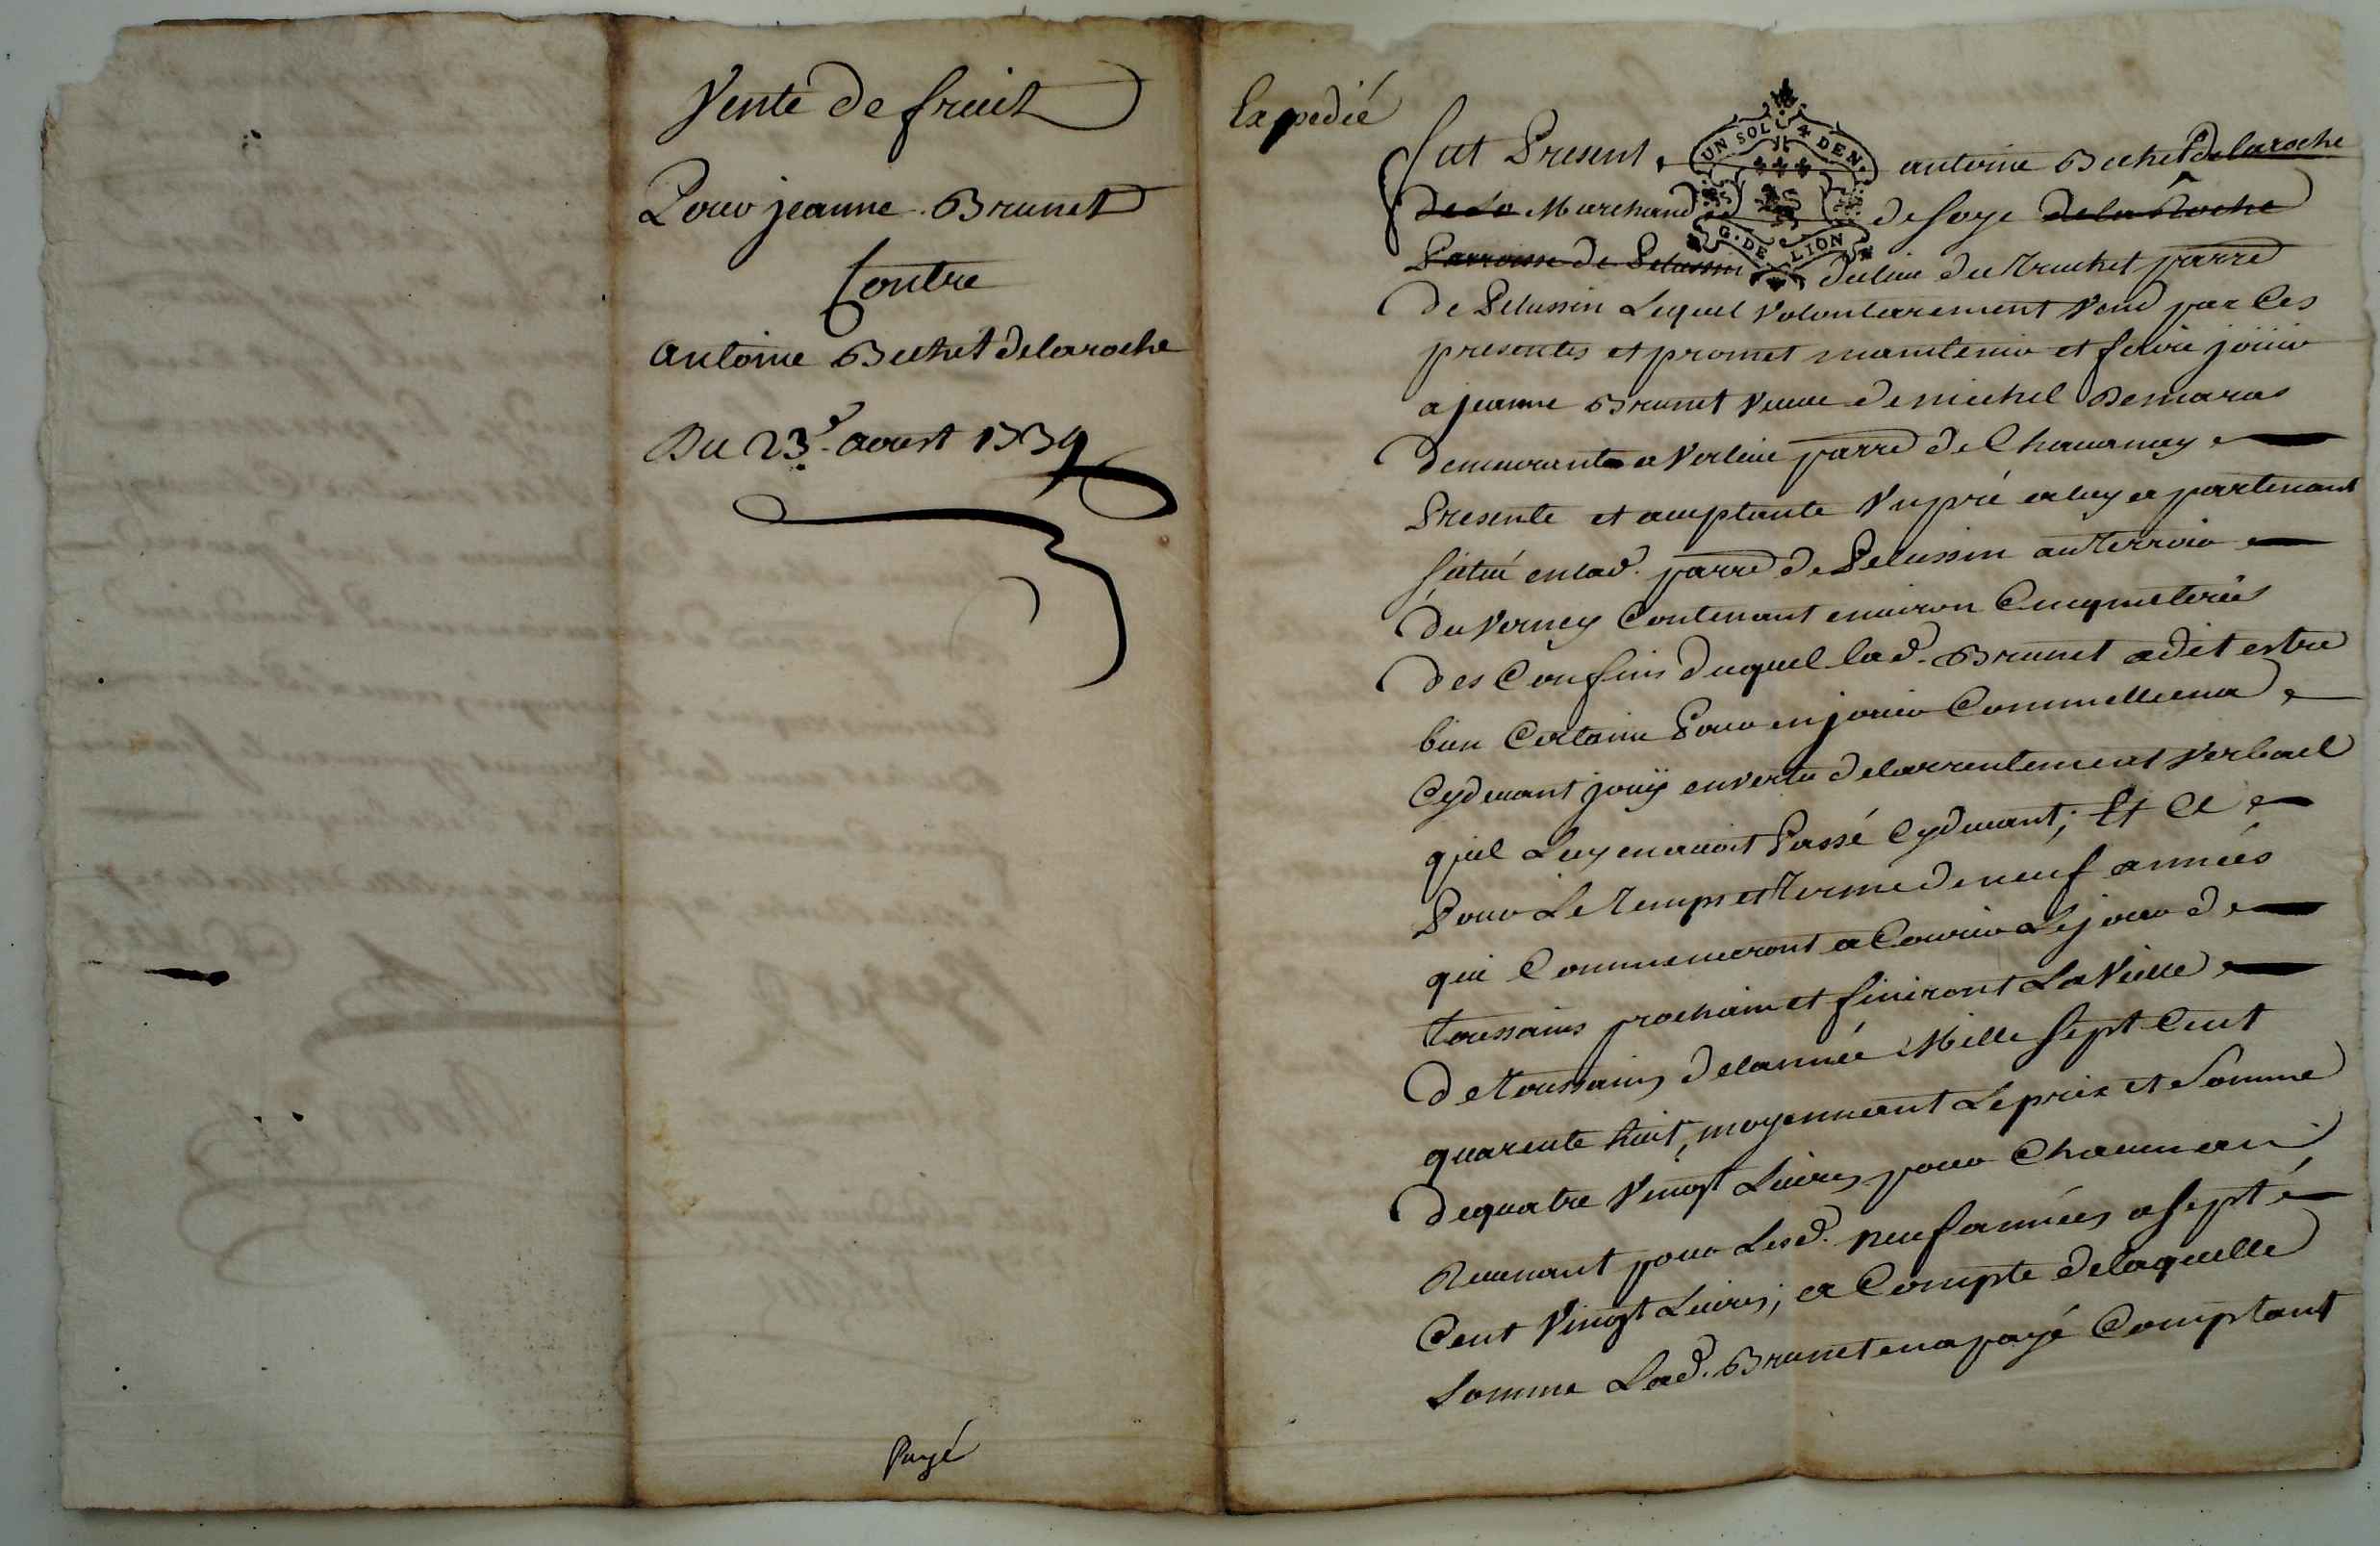 Vente de fruit
Pour jeanne Brunet
Contre
antoine Bechet delaroche
Du 23e. aoust 1739
Payé
Expedié
fut Present, antoine Bechet delaroche
de La Marchand de soye de la Roche
Parroisse de Pelussin du lieu du Truchet parre
de Pelussin Lequel volontairement vend par Ces
presentes et promet maintenir et faire joüir
a jeanne Brunet veuve de michel Demaras
demeurante a Verlieu parre de Chavanay
Presente et acceptante Un pré a luy apartenant
situé en lad. parre de Pelussin au Terroir
du Verney Contenant environ Cinq meterées
des Confins duquel lad. Brunet a dit estre
bien Certaine Pour en jouir Comme elle en a
Cydevant jouy en vertu de larrentement verbael
quil Luy en avoit Passé Cydevant; Et Ce
Pour Le Temps et Terme de neuf années
qui Commenceront a Courir Le jour de
toussains prochain et finiront La Veille
de Toussains de lannée Mille Sept Cent
quarente huit, moyennant Le prix et Somme
de quatre Vingt Livres pour Chacun an
Revenant pour Lesd. neuf années a sept
Cent Vingt Livres; a Compte de laquelle
Somme Lad. Brunet en a payé Comptant
UN SOL 4 DEN.
G. DE LION